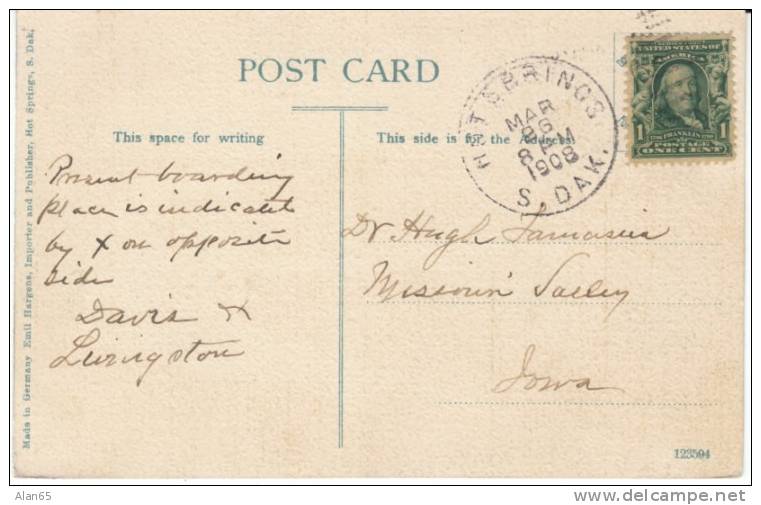 POST CARD
This space for writing
This side is for the Address
HOT SPRINGS
MAR
26
8 AM
1908
S. DAK.
UNITED STATES OF
AMERICA
1 FRANKLIN 1
POSTAGE
ONE CENT
Present boarding
place is indicated
by X on opposite
side
Davis &
Livingston
Dr Hugh
Missouri Valley
Iowa
Made in Germany Emil Hargens, Importer and Publisher, Hot Springs, S. Dak.
123504
Alan65
delcampe.net